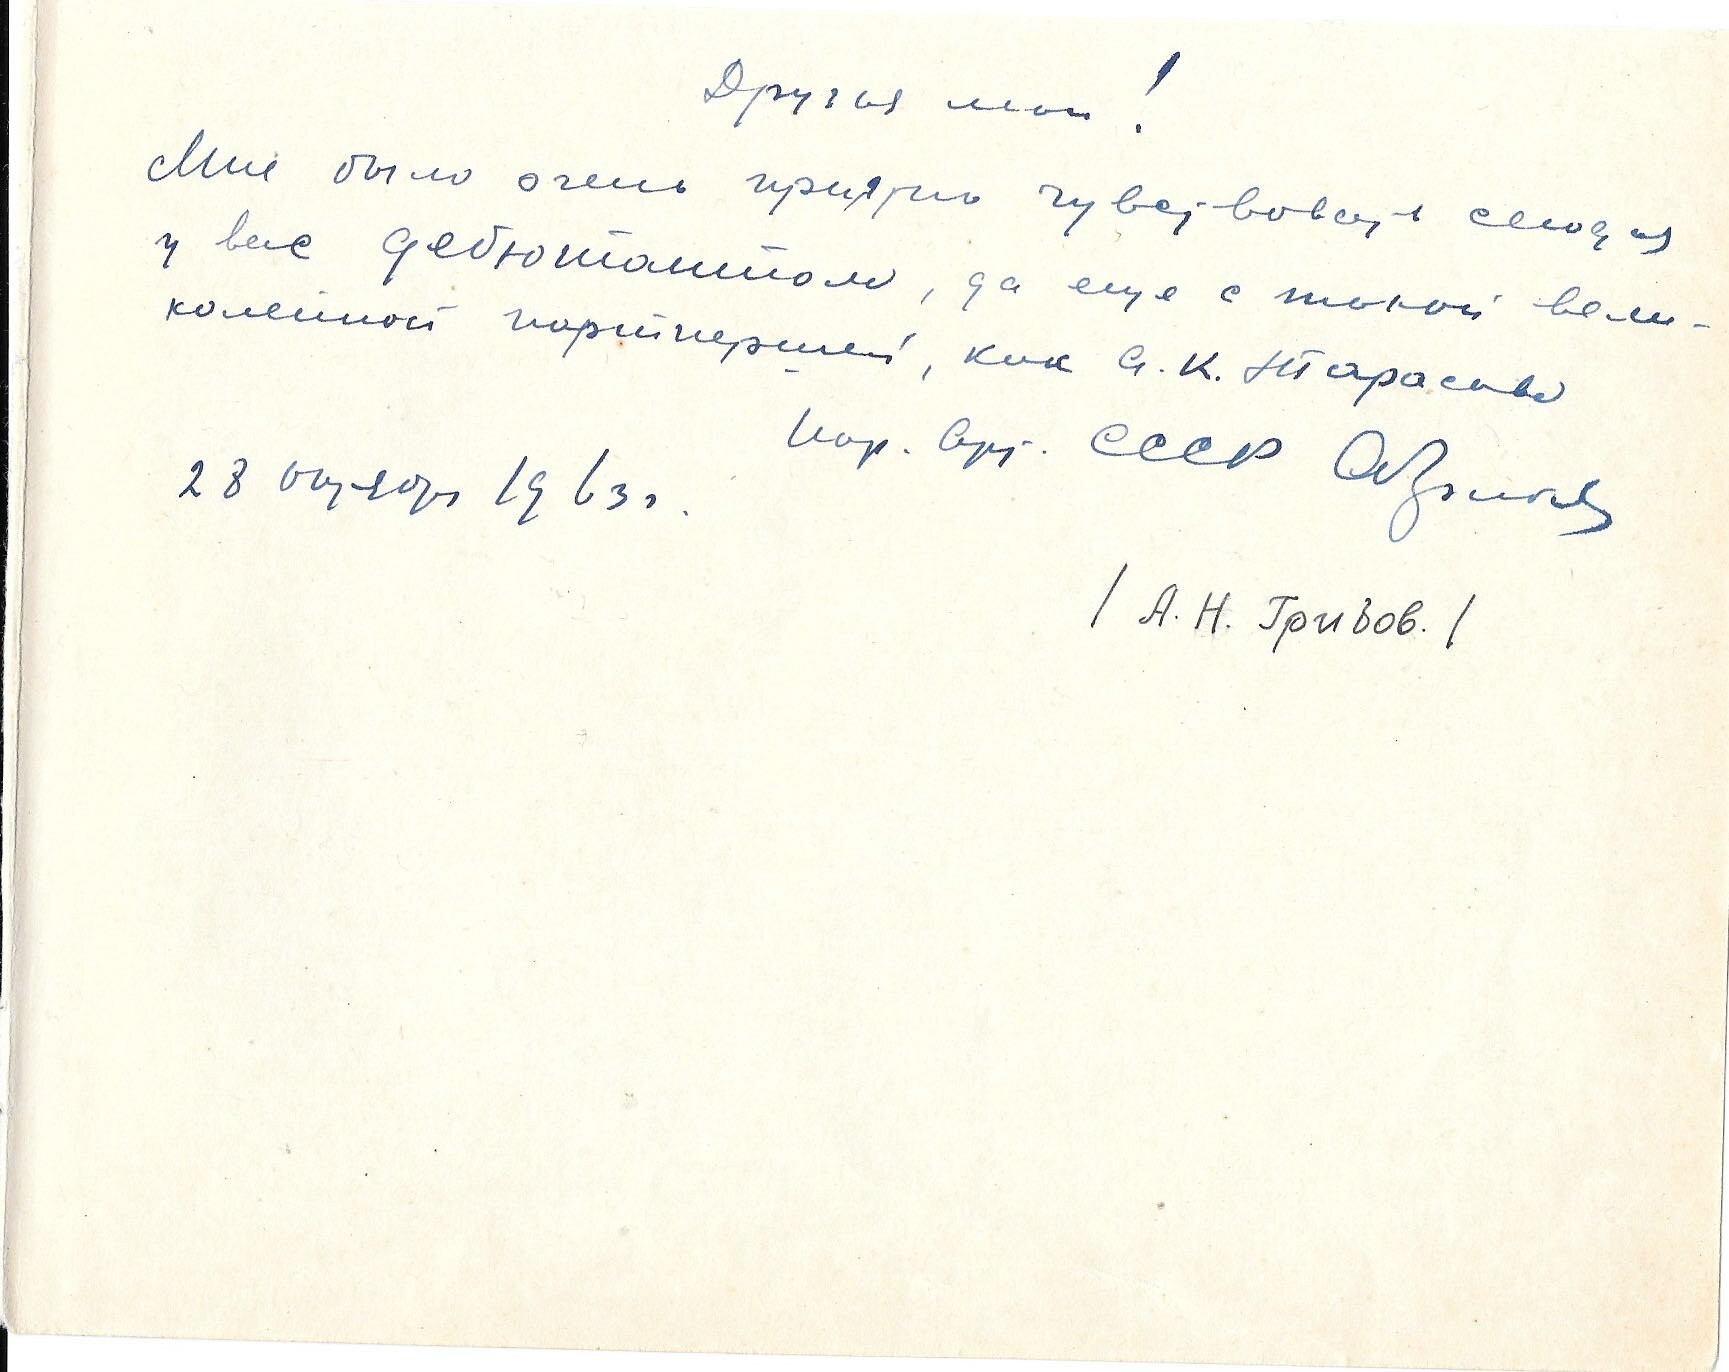 Друзья мои!
Мне было очень приятно чувствовать сегодня
у вас дебютантом, да еще с такой вели-
колепной партнершей, как А. К. Тарасова
Нар. Арт. СССР А Грибов
28 октября 1963 г.
/ А. Н. Грибов. /